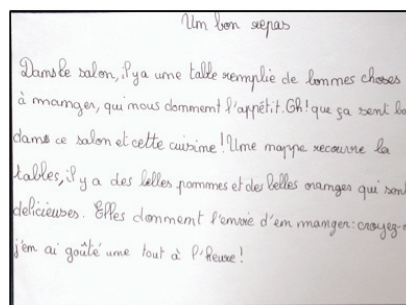 Un bon repas
Dans le salon, il y a une table remplie de bonnes choses
à manger, qui nous donnent l'appétit. Oh! que ça sent bo
dans ce salon et cette cuisine! Une nappe recouvre la
tables, il y a des belles pommes et des belles oranges qui sont
delicieuses. Elles donnent l'envie d'en manger: croyez-
j'en ai goûté une tout à l'heure!